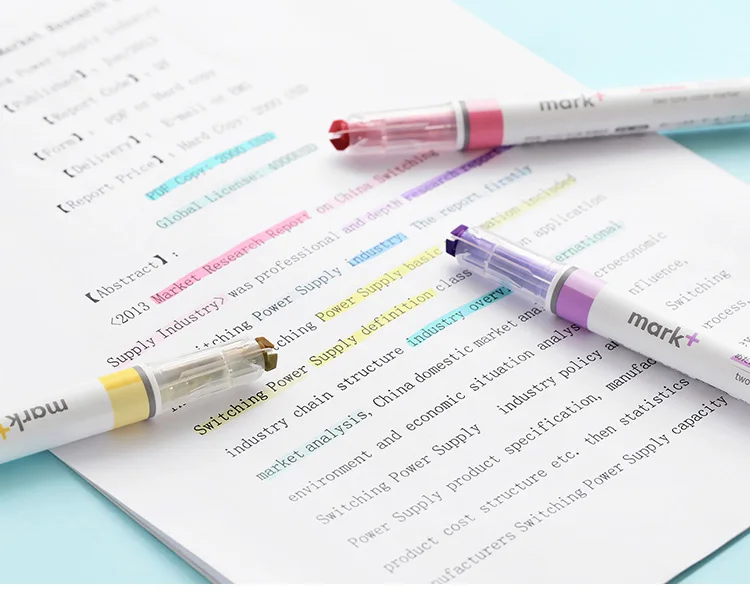 Market Research
Power Supply Industry
【Published】: Jan/2013
【Report Code】: QY
【Form】: PDF or Hard copy
【Delivery】: E-mail or EMS
【Report Price】: Hard Copy: 2000 USD
PDF Copy: 2000 USD
Global License: 4000USD
【Abstract】:
《2013 Market Research Report on China Switching
Supply Industry》 was professional and depth research report
Switching Power Supply industry. The report firstly
Power Supply basic included
Switching Power Supply definition class application
industry chain structure industry overv international
market analysis, China domestic market ana croeconomic
environment and economic situation analys nfluence,
Switching Power Supply industry policy Switching
Power Supply product specification, manufac rocess,
product cost structure etc. then statistics
nufacturers Switching Power Supply capacity
mark+
two tone color marker
mark+
two
mark+